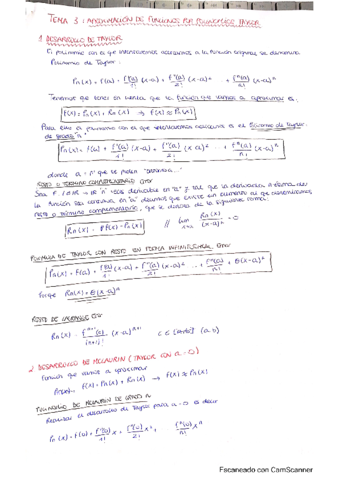 TEMA 3: APROXIMACIÓN DE FUNCIONES POR POLINOMIOS TAYLOR
1 DESARROLLO DE TAYLOR
El polinomio con el que intentaremos acercarnos a la función original se denomina
Polinomio de Taylor:
Pn(x) = f(a) + f'(a)/1! (x-a) + f''(a)/2! (x-a)² + fⁿ(a)/n! (x-a)ⁿ
Tenemos que tener en cuenta que la función que vamos a aproximar es:
f(x) = Pn(x) + Rn(x) → f(x) ≈ Pn(x)
Para ello el polinomio con el que intentaremos acercarnos es el Polinomio de Taylor
de grado "n":
Pn(x) = f(a) + f'(a)/1! (x-a) + f''(a)/2! (x-a)² ... + fⁿ(a)/n! (x-a)ⁿ
donde a = nº que te piden
RESTO O TÉRMINO COMPLEMENTARIO
Sea f "n" veces derivable en "a" y tal que la derivada n-ésima de
la función sea continua en "a"
resto o término complementario, que de la siguiente forma:
Rn(x) = f(x) - Pn(x) // lim Rn(x)/(x-a)ⁿ = 0
FÓRMULA DE TAYLOR CON RESTO EN FORMA INFINITESIMAL
Pn(x) = f(a) + f'(a)/1! (x-a) + f''(a)/2! (x-a)² ... + fⁿ(a)/n! + θ(x-a)ⁿ
Porque Rn(x) = θ(x-a)ⁿ
RESTO DE LAGRANGE
Rn(x) = fⁿ⁺¹(c)/(n+1)! (x-a)ⁿ⁺¹
2 DESARROLLO DE MCLAURIN (TAYLOR CON a = 0)
Función que vamos a aproximar
f(x) = Pn(x) + Rn(x) → f(x) ≈ Pn(x)
POLINOMIO DE MCLAURIN DE GRADO n
Realizar el desarrollo de Taylor para a = 0 es decir
Pn(x) = f(0) + f'(0)x/1! + f''(0)x²/2! fⁿ(0)xⁿ/n!
Escaneado con CamScanner